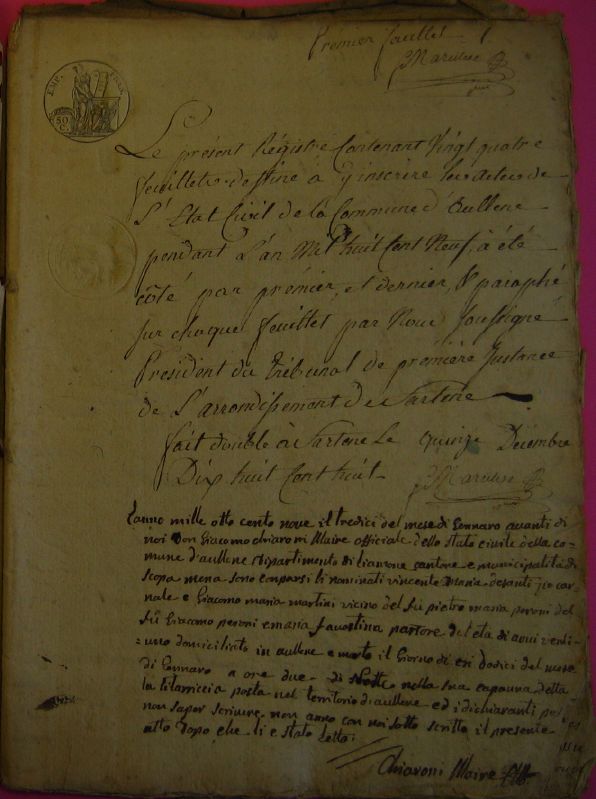 Premier feuillet 1
EMP. FRAN.
50 C.
Le present Régistré Contenant Vingt quatre
feuillets destiné à y inscrire les actes de
L'Etat Civil de la Commune d'Aullene
pendant L'an Mil huit Cent Neuf, à été
côté par prémier, et dernier, & paraphé
sur chaque feuillet par Nous Soussigné
President du Tribunal de prémiére Instance
de L'arrondissement de Sartene
fait double à Sartene Le quinze Décembre
Dix huit Cent huit
L'anno mille otto cento nove il tredici del mese di Gennaro avanti di
noi Don Giacomo chiaroni Maire officiale dello stato civile della co-
mune d'aullene dipartimento di liamone cantone e municipalità di
scopa mena sono comparsi li nominati vincente maria desanti
nale e Giacomo maria martini vicino del fù pietro maria peroni del
fù Giacomo peroni e maria faustina pastore del età di anni venti-
uno domiciliato in aullene e morto il Giorno di eri dodici del mese
di Gennaro a ore due di notte nella sua capanna detta
la posta nel territorio di aullene ed i dichiaranti
non saper scrivere non anno con noi sotto scritto il presente
atto dopo che li e stato letto
Chiaroni Maire